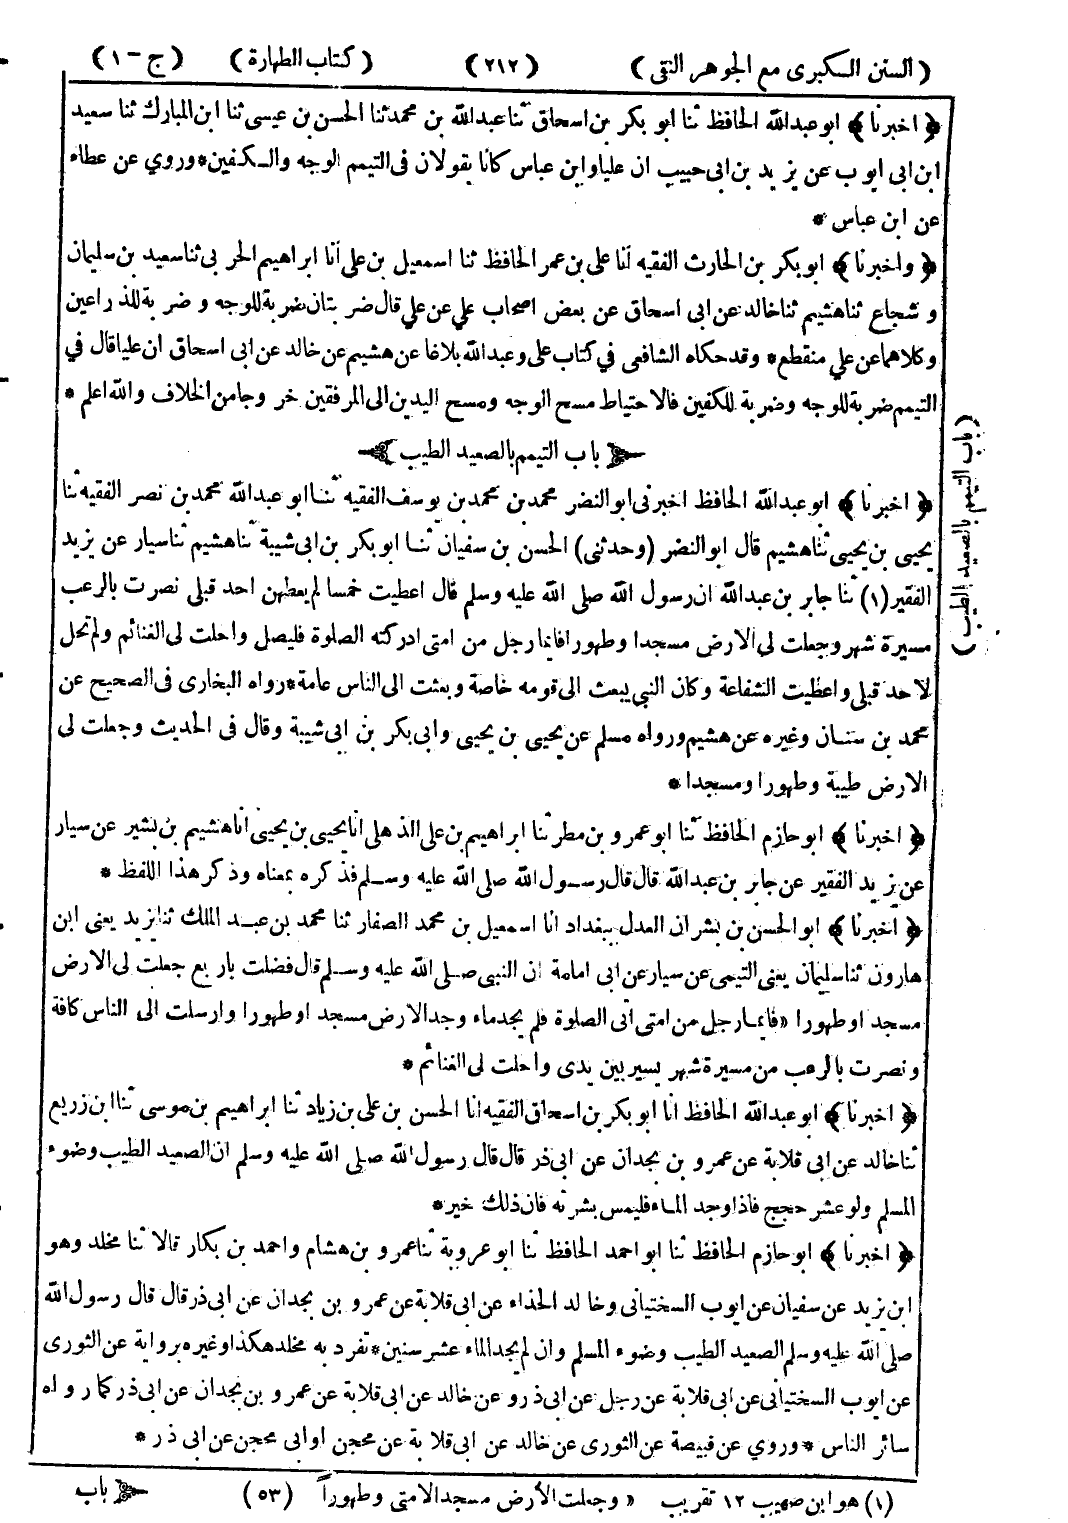 ( السنن الكبرى مع الجوهر النقى ) ( ٢١٢ ) ( كتاب الطهارة ) ( ج - ١ )
﴿ اخبرنا ﴾ ابو عبدالله الحافظ ثنا ابو بكر بن اسحاق ثنا عبدالله بن محمد ثنا الحسن بن عيسى ثنا ابن المبارك ثنا سعيد
ابن ابى ايوب عن يزيد بن ابى حبيب ان عليا وابن عباس كانا يقولان فى التيمم الوجه والكفين * وروي عن عطاء
عن ابن عباس *
﴿ واخبرنا ﴾ ابو بكر بن الحارث الفقيه أنا على بن عمر الحافظ ثنا اسمعيل بن على أنا ابراهيم الحربى ثنا سعيد بن سليمان
و شجاع ثنا هشيم ثنا خالد عن ابى اسحاق عن بعض اصحاب علي عن علي قال ضربتان ضربة للوجه و ضربة للذراعين
وكلاهما عن علي منقطع * وقد حكاه الشافعى في كتاب على وعبدالله بلاغا عن هشيم عن خالد عن ابى اسحاق ان عليا قال في
التيمم ضربة للوجه وضربة للكفين فالاحتياط مسح الوجه ومسح اليدين الى المرفقين خروجا من الخلاف والله اعلم *
باب التيمم بالصعيد الطيب
( باب التيمم بالصعيد الطيب )
﴿ اخبرنا ﴾ ابو عبدالله الحافظ اخبرنى ابو النضر محمد بن محمد بن يوسف الفقيه ثنا ابو عبدالله محمد بن نصر الفقيه ثنا
يحيى بن يحيى ثنا هشيم قال ابو النضر (وحدثنى) الحسن بن سفيان ثنا ابو بكر بن ابى شيبة ثنا هشيم ثنا سيار عن يزيد
الفقير (١) ثنا جابر بن عبدالله ان رسول الله صلى الله عليه وسلم قال اعطيت خمسا لم يعطهن احد قبلى نصرت بالرعب
مسيرة شهر وجعلت لى الارض مسجدا وطهورا فايما رجل من امتى ادركته الصلوة فليصل واحلت لى الغنائم ولم تحل
لاحد قبلى واعطيت الشفاعة وكان النبي يبعث الى قومه خاصة وبعثت الى الناس عامة * رواه البخارى فى الصحيح عن
محمد بن سنان وغيره عن هشيم ورواه مسلم عن يحيى بن يحيى وابى بكر بن ابى شيبة وقال فى الحديث وجعلت لى
الارض طيبة وطهورا ومسجدا *
﴿ اخبرنا ﴾ ابو حازم الحافظ ثنا ابو عمرو بن مطر ثنا ابراهيم بن على الذهلى انا يحيى بن يحيى انا هشيم بن بشير عن سيار
عن يزيد الفقير عن جابر بن عبدالله قال قال رسول الله صلى الله عليه وسلم فذكره بمعناه وذكر هذا اللفظ *
﴿ اخبرنا ﴾ ابو الحسن بن بشران العدل ببغداد انا اسمعيل بن محمد الصفار ثنا محمد بن عبد الملك ثنا يزيد يعنى ابن
هارون ثنا سليمان يعنى التيمى عن سيار عن ابى امامة ان النبى صلى الله عليه وسلم قال فضلت باربع جعلت لى الارض
مسجدا وطهورا « فايما رجل من امتى اتى الصلوة فلم يجد ماء وجد الارض مسجدا وطهورا وارسلت الى الناس كافة
ونصرت بالرعب من مسيرة شهر يسير بين يدى واحلت لى الغنائم *
﴿ اخبرنا ﴾ ابو عبدالله الحافظ انا ابو بكر بن اسحاق الفقيه انا الحسن بن على بن زياد ثنا ابراهيم بن موسى ثنا ابن زريع
ثنا خالد عن ابى قلابة عن عمرو بن بجدان عن ابى ذر قال قال رسول الله صلى الله عليه وسلم ان الصعيد الطيب وضوء
المسلم ولو عشر حجج فاذا وجد الماء فليمس بشرته فان ذلك خير *
﴿ اخبرنا ﴾ ابو حازم الحافظ ثنا ابو احمد الحافظ ثنا ابو عروبة ثنا عمرو بن هشام واحمد بن بكار قالا ثنا مخلد وهو
ابن يزيد عن سفيان عن ايوب السختيانى وخالد الحذاء عن ابى قلابة عن عمرو بن بجدان عن ابى ذر قال قال رسول الله
صلى الله عليه وسلم الصعيد الطيب وضوء المسلم وان لم يجد الماء عشر سنين * تفرد به مخلد هكذا وغيره يرويه عن الثورى
عن ايوب السختيانى عن ابى قلابة عن رجل عن ابى ذر وعن خالد عن ابى قلابة عن عمرو بن بجدان عن ابى ذر كما رواه
سائر الناس * وروي عن قبيصة عن الثورى عن خالد عن ابى قلابة عن محجن او ابى محجن عن ابى ذر *
(١) هو ابن صهيب ١٢ تقريب « وجعلت الأرض مسجدا لامتى وطهوراً (٥٣) باب